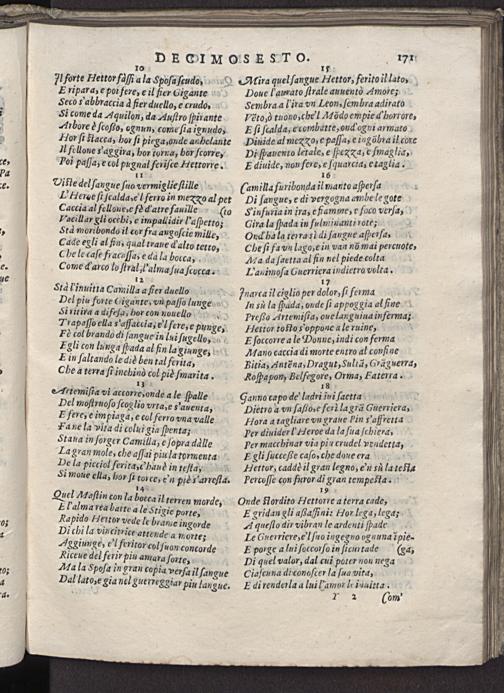 DECIMOSESTO. 171
10
Il forte Hettor fàssi a la Sposa scudo,
E ripara, e poi fere, e il fier Gigante
Seco s'abbraccia à fier duello, e crudo,
Si come da Aquilon, da Austro spirante
Arbore è scosso, ognun, come sia ignudo,
Hor si stacca, hor si piega, onde anhelante
Il fellone s'aggira, hor torna, hor scorre,
Poi passa, e col pugnal ferisce Hettorre.
11
Viste del sangue suo vermiglie stille
L'Heroe si scalda, e'l ferro in mezzo al pet
Caccia al fellone: e fè d'atre fauille (to
Vacillar gli occhi, e impallidir l'aspetto;
Stà moribondo il cor fra angoscie mille,
Cade egli al fin, qual traue d'alto tetto,
Che le case fracassa, e dà la bocca,
Come d'arco lo stral; l'alma sua scocca.
12
Stà l'inuitta Camilla a fier duello
Del piu forte Gigante, vn passo lunge
Si ritira a difesa, hor con nouello
Trapasso ella s'affaccia, e'l fere, e punge,
Fè col brando di sangue in lui sugello,
Egli con lunga spada al fin la giunge,
E in saltando le diè ben tal ferita,
Che a terra si inchinò col piè smarita.
13
Artemisia vi accorre, onde a le spalle
Del mostruoso scoglio vrta, e s'auenta,
E fere, e impiaga, e col ferro vna valle
Fa ne la vita di colui già spenta;
Stana in sorger Camilla, e sopra dàlle
La gran mole, che assai piu la tormenta
De la picciol ferita, c'hauè in testa,
Si moue ella, hor si torce, e'n piè s'arresta.
14
Quel Mastin con la bocca il terren morde,
E l'alma rea batte a le Stigie porte,
Rapido Hettor vede le brame ingorde
Di chi la vincitrice attende a morte;
Aggiunge, e'l feritor col suon concorde
Riceue del ferir piu amara sorte,
Ma la Sposa in gran copia versa il sangue
Dal lato, e gia nel guerreggiar piu langue.
15
Mira quel sangue Hettor, ferito il lato,
Doue l'aurato strale auuentò Amore;
Sembra a l'ira vn Leon, sembra adirato
Vèto, ò tuono, che'l Mōdo empie d'horrore,
E si scalda, e combatte, ond'ogni armato
Diuide al mezzo, e passa, e ingōbra il core
Di spauento letale, e spezza, e smaglia,
E diuide, non fere, e squarcia, e taglia.
16
Camilla furibonda il manto aspersa
Di sangue, e di vergogna ambe le gote
S'infuria in ira, e fiamme, e foco versa,
Gira la spada in fulminanti rote;
Ond'ha la terra sì di sangue aspersa,
Che si fà vn lago, e in van nō mai percuote,
Ma da saetta al fin nel piede colta
L'animosa Guerriera indietro volta.
17
Inarca il ciglio per dolor, si ferma
In sù la spada, onde si appoggia al fine
Presso Artemisia, oue languiua inferma;
Hettor tosto s'oppone a le ruine,
E soccorre a le Donne, indi con ferma
Mano caccia di morte entro al confine
Bitia, Antēna, Dragut, Sultā, Grāguerra,
Rospapon, Belfegore, Orma, Faterra.
18
Ganno capo de' ladri iui saetta
Dietro a vn sasso, e ferì la grā Guerriera,
Hora a tagliare vn graue Pin s'affretta
Per diuider l'Heroe da la sua schiera,
Per macchinar via piu crudel vendetta,
E gli successe caso, che doue era
Hettor, caddè il gran legno, e'n sù la testa
Percosse con furor di gran tempesta.
19
Onde stordito Hettorre a terra cade,
E gridan gli assassini: Hor lega, lega;
A questo dir vibran le ardenti spade
Le Guerriere, e'l suo ingegno ognuna ì pie-
E porge a lui soccorso in sicurtade (ga,
Di quel valor, dal cui poter non nega
Ciascuna di conoscer la sua vita,
E di renderla a lui l'amor le inuitta.
Y 2 Com'